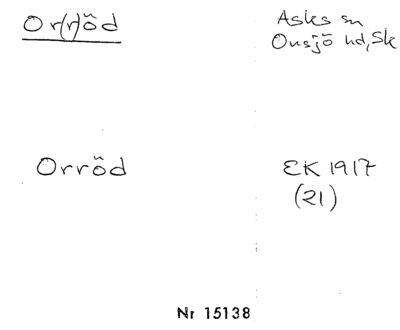 Or(r)öd
Asks sn
Onsjö hd, Sk
Orröd
EK 1917
(21)
Nr 15138